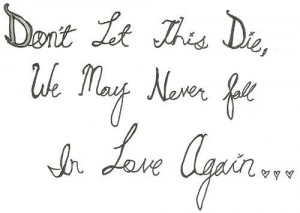 Don't Let This Die,
We May Never fall
In Love Again...